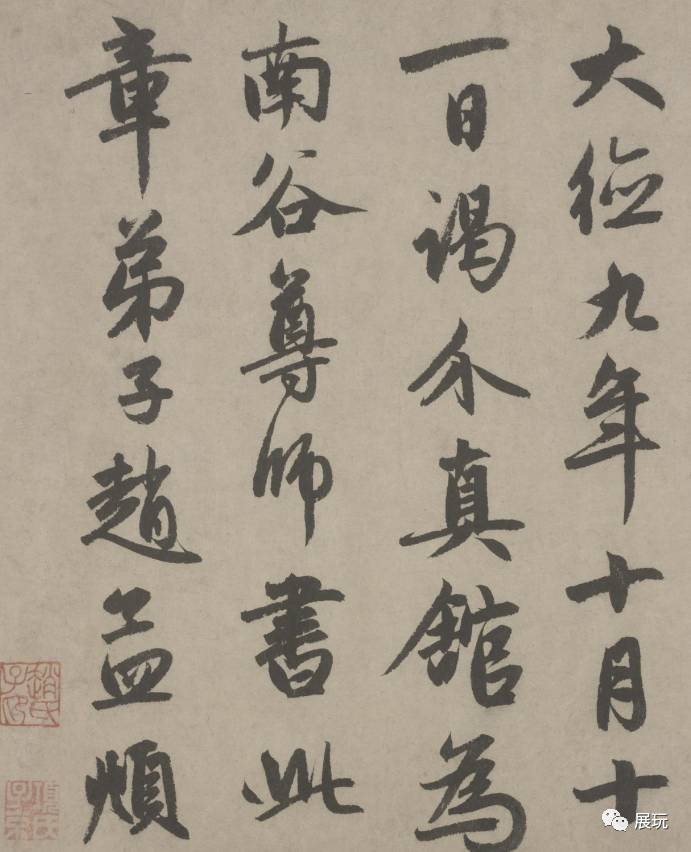 大德九年十月十
一日謁介真館為
南谷尊師書此
章弟子趙孟頫
趙氏子昂
展玩